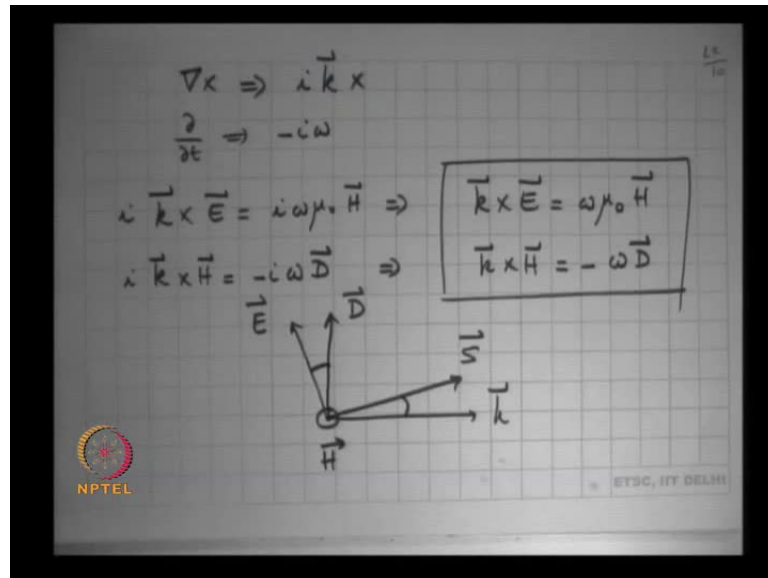 ∇× ⇒ i k⃗ ×
∂/∂t ⇒ -iω
i k⃗ × E⃗ = iωμ₀ H⃗ ⇒ k⃗ × E⃗ = ωμ₀ H⃗
i k⃗ × H⃗ = -iω D⃗ ⇒ k⃗ × H⃗ = -ω D⃗
E⃗ D⃗
S⃗
k⃗
H⃗
NPTEL
ETSC, IIT DELHI